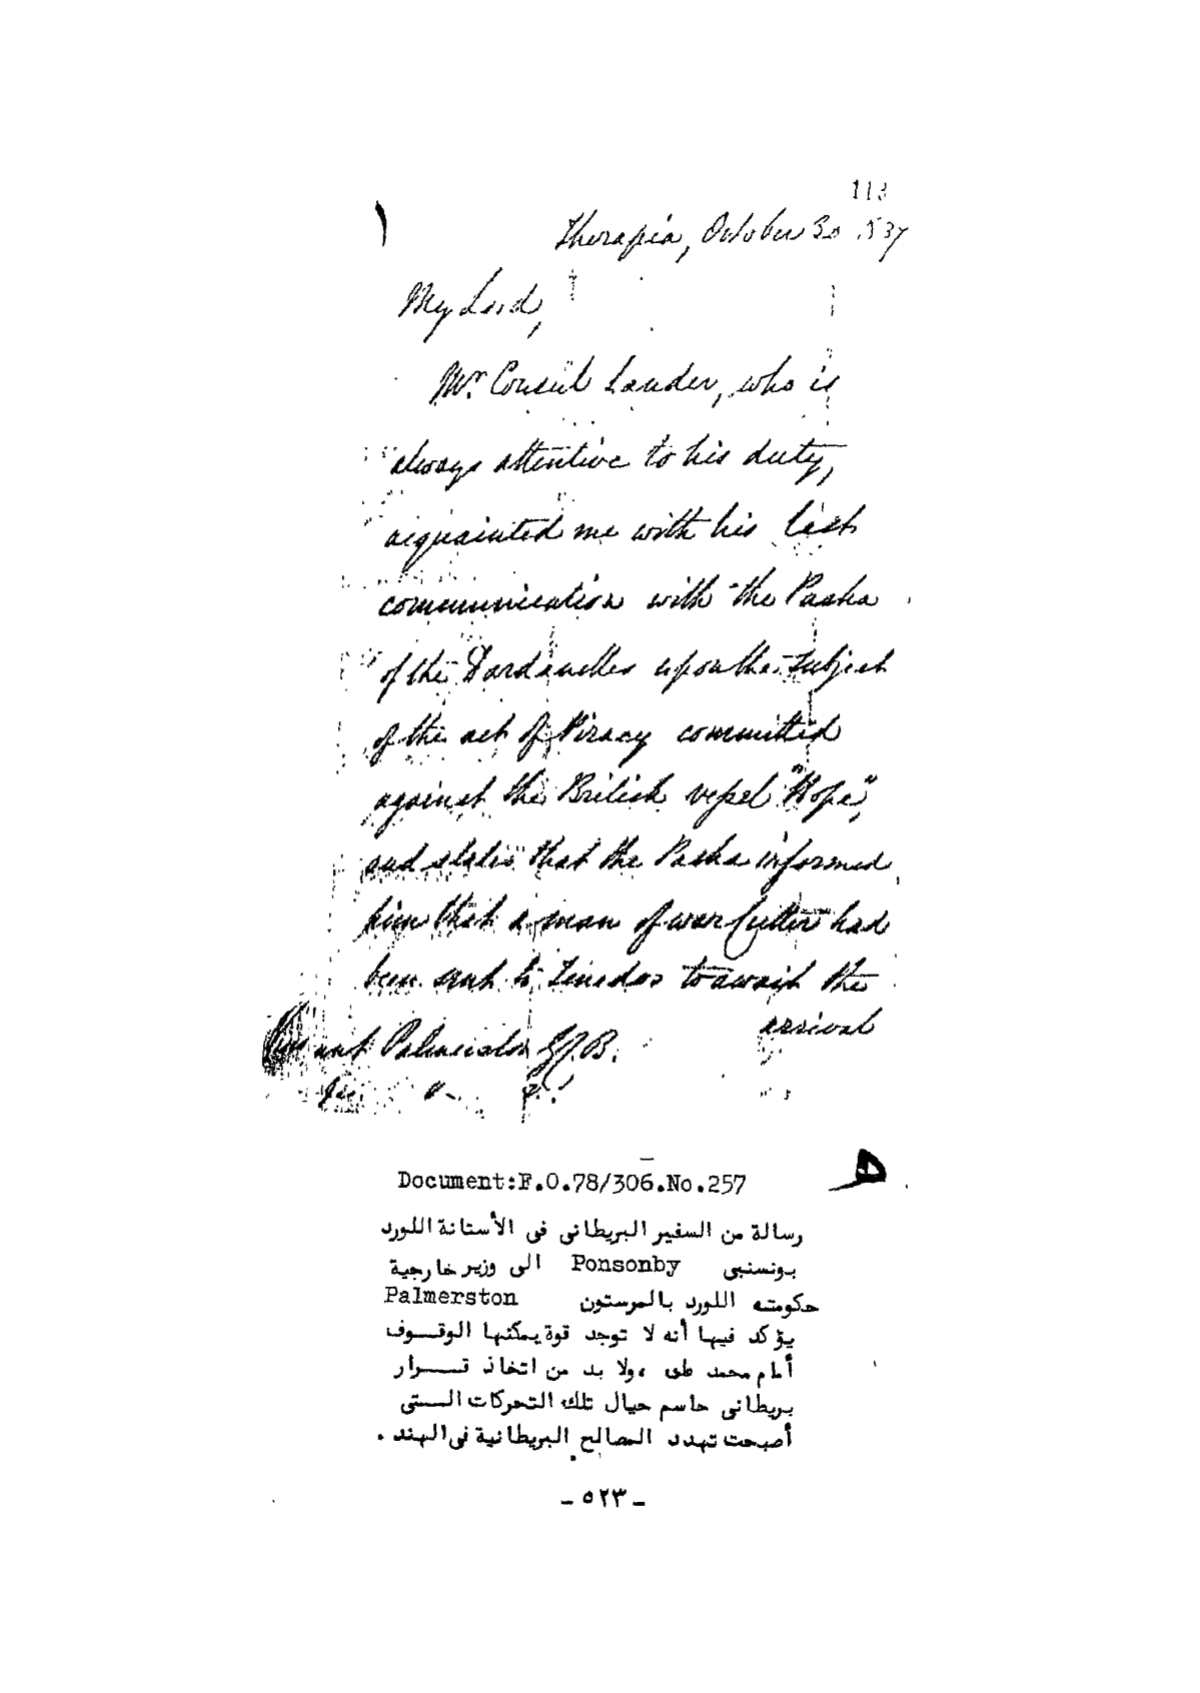 113
Therapia, October 30 1837
My Lord,
Mr. Consul Lander, who is
always attentive to his duty,
acquainted me with his last
communication with the Pasha
of the Dardanelles upon the subject
of the act of Piracy committed
against the British vessel "Hope",
and states that the Pasha informed
him that a man of war Cutter had
been sent to Tenedos to await the
arrival
Palmerston G.C.B.
Document:F.O.78/306.No.257
هـ
رسالة من السفير البريطانى فى الأستانة اللورد
بونسنبى Ponsonby الى وزير خارجية
حكومته اللورد بالمرستون Palmerston
يؤكد فيها أنه لا توجد قوة يمكنها الوقوف
أمام محمد على ، ولا بد من اتخاذ قرار
بريطانى حاسم حيال تلك التحركات الستى
أصبحت تهدد المصالح البريطانية فى الهند .
- ٥٢٣ -